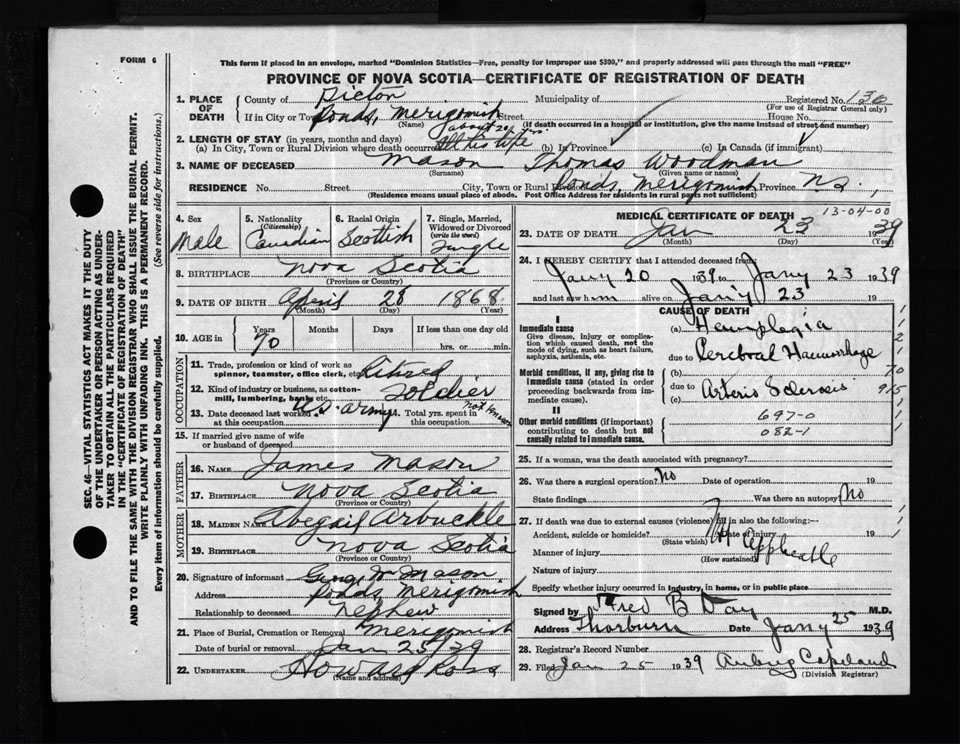 FORM 6
This form if placed in an envelope, marked "Dominion Statistics—Free, penalty for improper use $300," and properly addressed will pass through the mail "FREE"
PROVINCE OF NOVA SCOTIA—CERTIFICATE OF REGISTRATION OF DEATH
SEC. 46—VITAL STATISTICS ACT MAKES IT THE DUTY
OF THE UNDERTAKER OR PERSON ACTING AS UNDER-
TAKER TO OBTAIN ALL THE PARTICULARS REQUIRED
IN THE "CERTIFICATE OF REGISTRATION OF DEATH"
AND TO FILE THE SAME WITH THE DIVISION REGISTRAR WHO SHALL ISSUE THE BURIAL PERMIT.
WRITE PLAINLY WITH UNFADING INK. THIS IS A PERMANENT RECORD.
Every item of information should be carefully supplied. (See reverse side for instructions.)
1. PLACE OF DEATH County of Pictou Municipality of Registered No. 136
(For use of Registrar General only)
If in City or Town Ponds, Merigomish Street House No.
(Name) (If death occurred in a hospital or institution, give the name instead of street and number)
about 20 yrs.
2. LENGTH OF STAY (in years, months and days)
(a) In City, Town or Rural Division where death occurred All his life (b) In Province (c) In Canada (if immigrant)
3. NAME OF DECEASED Mason Thomas Woodman
(Surname) (Given name or names)
RESIDENCE No. Street City, Town or Rural Division Ponds, Merigomish Province N.S.
(Residence means usual place of abode. Post Office Address for residents in rural parts not sufficient)
4. Sex Male
5. Nationality (Citizenship) Canadian
6. Racial Origin Scottish
7. Single, Married, Widowed or Divorced (write the word) Single
8. BIRTHPLACE Nova Scotia
(Province or Country)
9. DATE OF BIRTH April 28 1868
(Month) (Day) (Year)
10. AGE in Years Months Days If less than one day old
70 hrs. or min.
OCCUPATION
11. Trade, profession or kind of work as spinner, teamster, office clerk, etc. Retired
12. Kind of industry or business, as cotton-mill, lumbering, bank, etc. Soldier
13. Date deceased last worked at this occupation U.S. army
14. Total yrs. spent in this occupation not known
15. If married give name of wife or husband of deceased
FATHER
16. NAME James Mason
17. BIRTHPLACE Nova Scotia
(Province or Country)
MOTHER
18. MAIDEN NAME Abegail Arbuckle
19. BIRTHPLACE Nova Scotia
(Province or Country)
20. Signature of informant Mason
Address Ponds, Merigomish
Relationship to deceased Nephew
21. Place of Burial, Cremation or Removal Merigomish
Date of burial or removal Jan 25/39
22. UNDERTAKER Howard Ross
(Name and address)
MEDICAL CERTIFICATE OF DEATH 13-04-00
23. DATE OF DEATH Jan 23 1939
(Month) (Day) (Year)
24. I HEREBY CERTIFY that I attended deceased from:
Jany 20 1939 to Jany 23 1939
and last saw him alive on Jany 23 19
CAUSE OF DEATH
I
Immediate cause
Give disease, injury or complication which caused death, not the mode of dying, such as heart failure, asphyxia, asthenia, etc.
(a) Hemiplegia
due to Cerebral Haemorrhage
Morbid conditions, if any, giving rise to immediate cause (stated in order proceeding backwards from immediate cause).
(b)
due to Arterio Sclerosis
(c)
II
Other morbid conditions (if important) contributing to death but not causally related to immediate cause.
697-0
082-1
25. If a woman, was the death associated with pregnancy?
26. Was there a surgical operation? No Date of operation 19
State findings Was there an autopsy? No
27. If death was due to external causes (violence) fill in also the following:—
Accident, suicide or homicide? Date of injury 19
(State which)
Manner of injury Not Applicable
(How sustained)
Nature of injury
Specify whether injury occurred in industry, in home, or in public place
Signed by Fred B Day M.D.
Address Thorburn Date Jany 25 1939
28. Registrar's Record Number
29. Filed Jan 25 1939 Copeland
(Division Registrar)